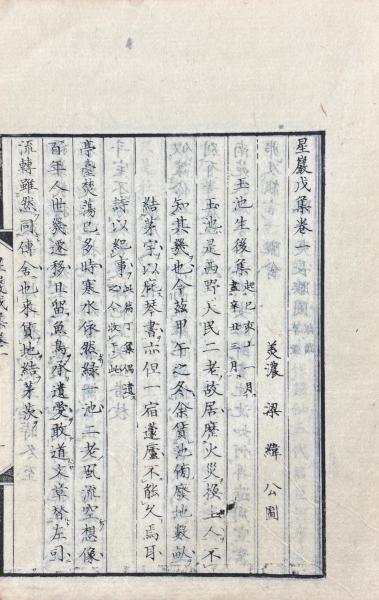 星巖戊集卷一
美濃 梁緯 公圖
玉池生後集 起己亥十一月
盡辛丑三月
玉池是西野天民二老故居歷火災換主人不
知其幾也今茲甲午之冬余賃池側廢地數畝
結茅宇以庇琴書亦但一宿蘧廬不能久焉耳
詩以紀事 此篇丁集偶遺
之今收于此
亭臺焚蕩已多時寒水依然綠池二老風流空想像
百年人世幾遷移且留魚鳥承遺愛敢道文章替左司
流轉雖然同傳舍也來賃地結茅茨